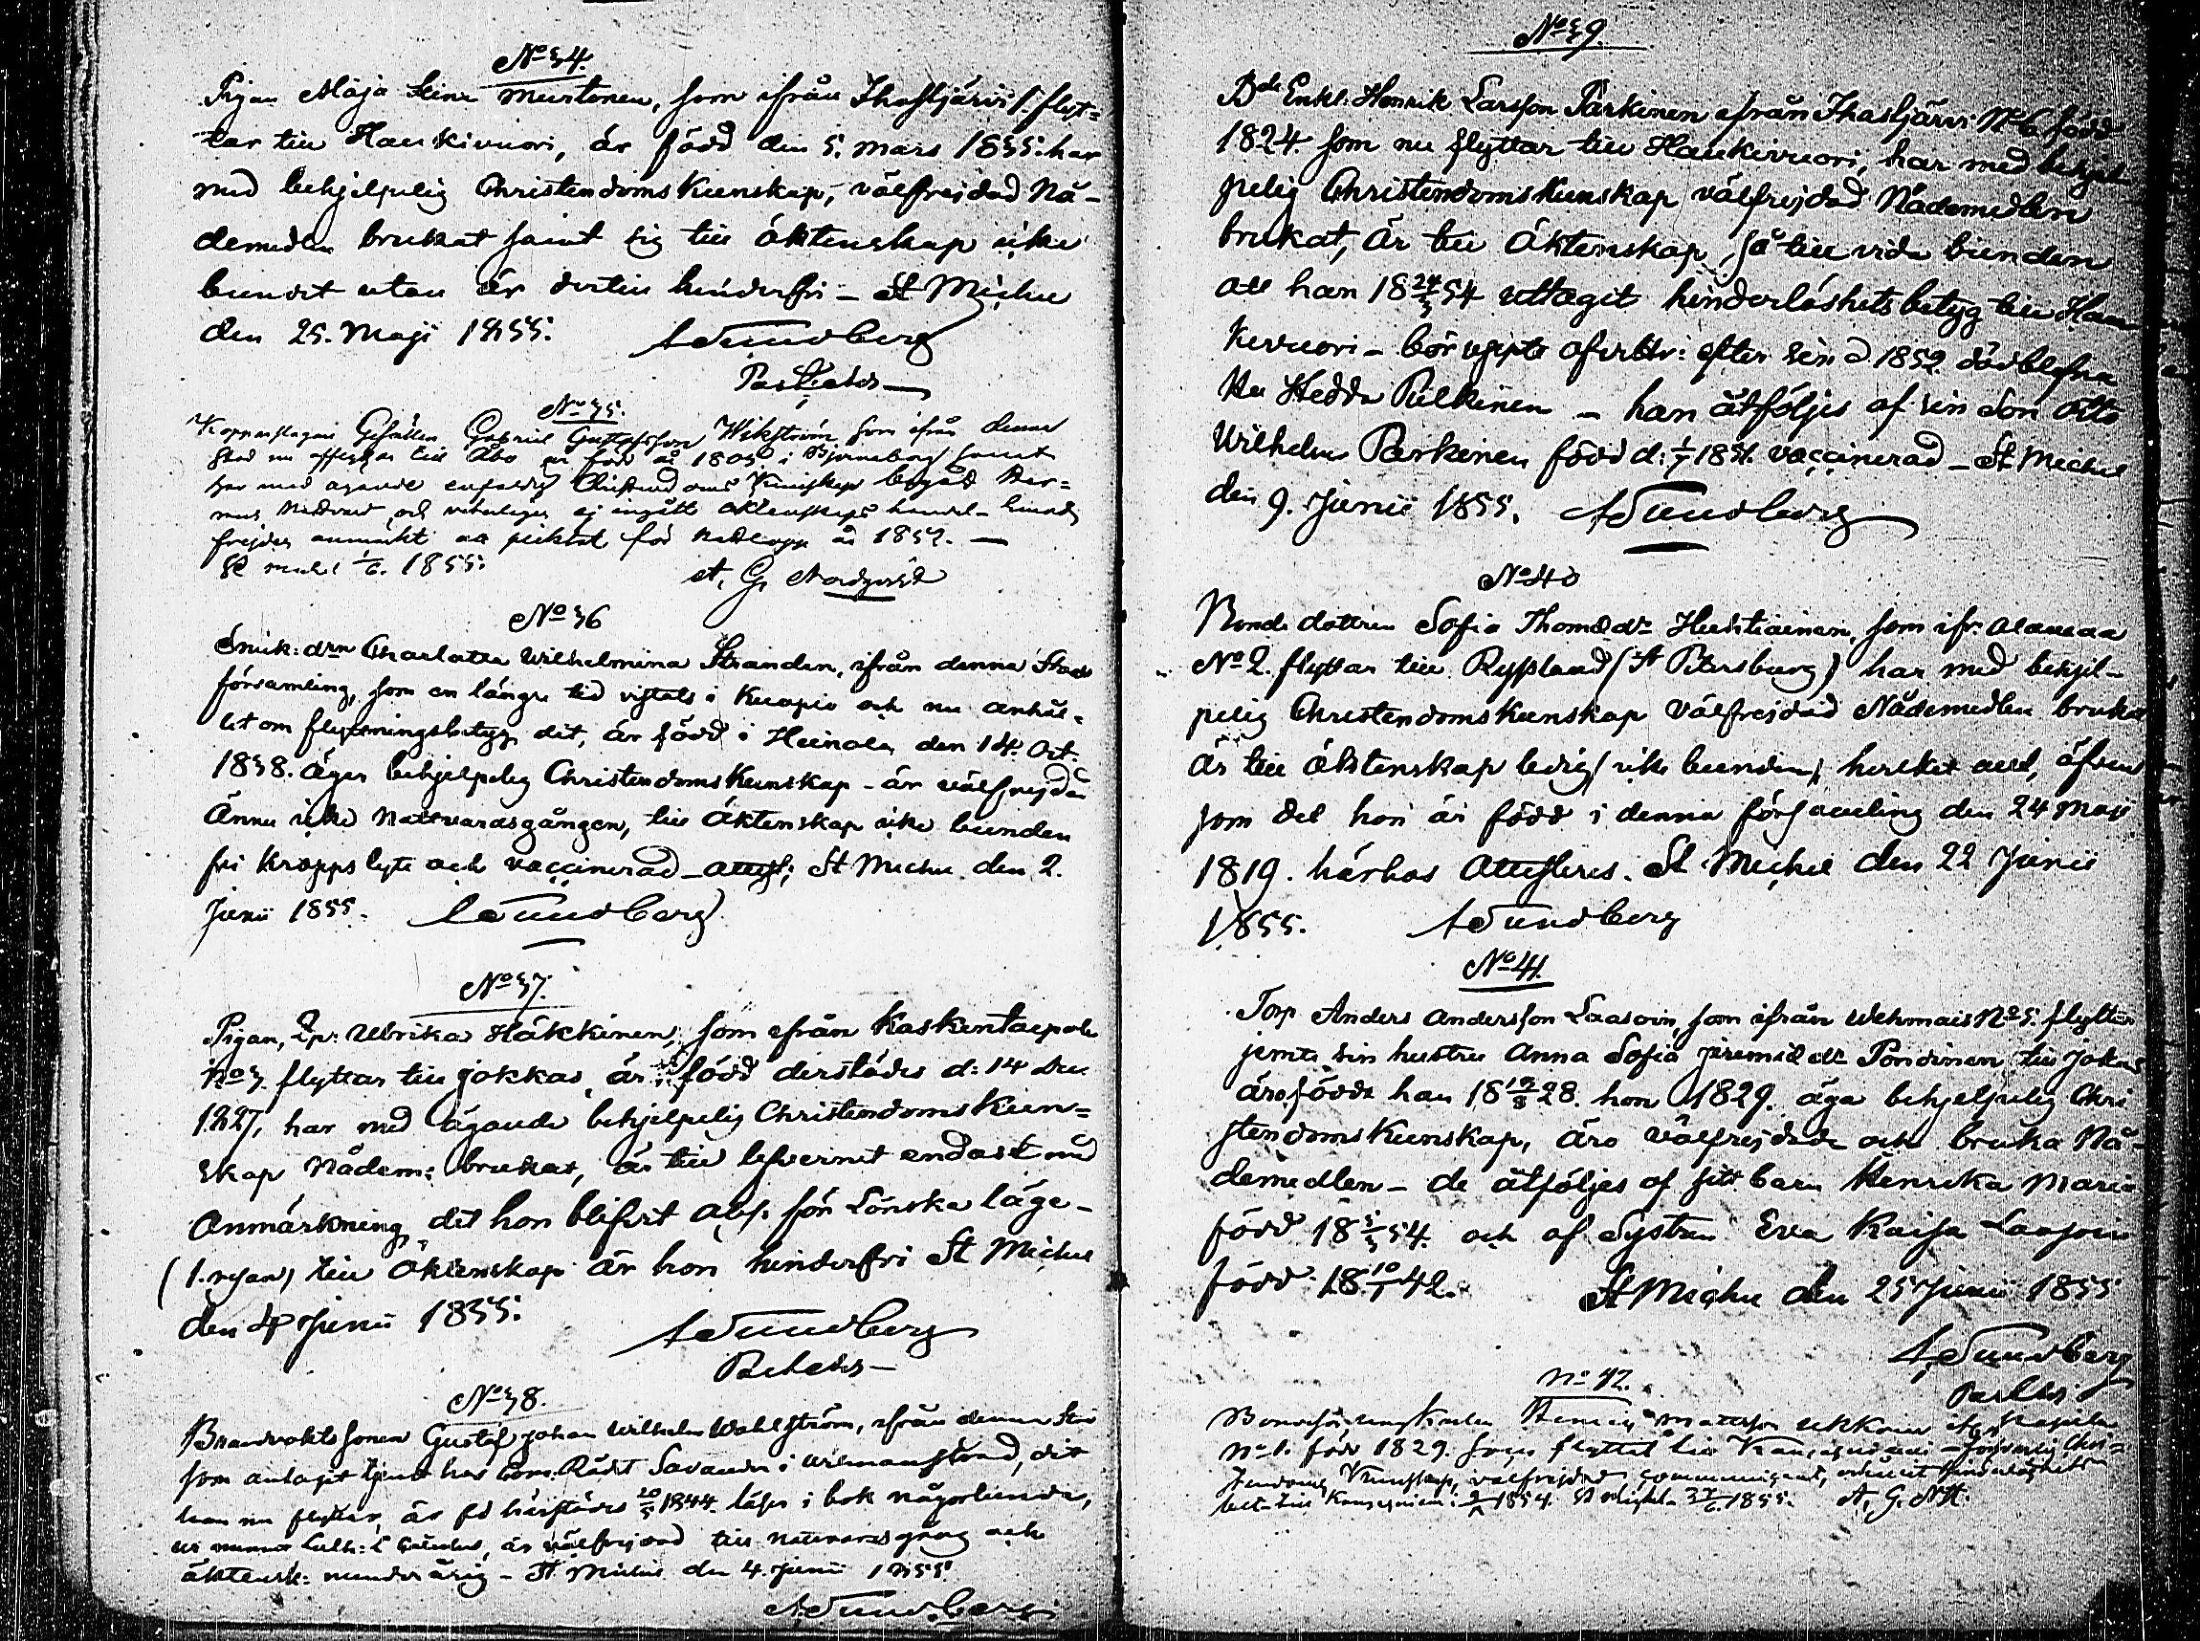 No 34.
Pigan Maja Stina Mustonen, som ifrån Ihastjärvi 1. flyt=
tar till Haukivuori, är född den 5. Mars 1835. har
med behjelpelig Christendoms Kunskap, välfrejdad Nå-
demedlen brukat samt sig till äktenskap icke
bundit utan är dertill hinderfri – St Michel
den 25. Maji 1855. A Sundberg
No 35.
Kopparslagare Gesällen Gabriel Gustafsson Wikström som ifrån denna
Stad nu till Åbo är född år 1805 i Björneborg samt
har med ägande Christendoms Kunskap begått Her=
rans Nattvard och veterligen ej ingått äktenskaps handel
för år 1852. —
1855. A. G. Nordqvist
No 36
Snick: drn Charlotta Wilhelmina Stranden, ifrån denna Stads
församling, som en längre tid vistats i Kuopio och nu anhål=
lit om flyttningsbetyg dit, är född i Heinola den 14. Oct.
1838. äger behjelpelig Christendoms Kunskap – är välfrejdad
Ännu icke Nattvardsgången, till Äktenskap icke bunden
fri kropps lyte och vaccinerad – attest; St Michel den 2.
Junii 1855. A Sundberg
No 37.
Pigan, Ulrika Häkkinen, som ifrån Kaskentaipale
No 3. flyttar till Jokkas, är född derstädes d: 14 Dec.
1827, har med ägande behjelpelig Christendoms Kun=
skap Nådem: brukat, är till lefvernet endast med
Anmärkning det hon blifvit abs. för Lönska läge-
(1. resan) till Äktenskap är hon hinderfri St Michel
den 4 Junii 1855.
A Sundberg
No 38.
Brandvakts Sonen Gustaf Johan Wilhelm Wahlström, ifrån denna Stad
som antagit tjenst hos Com. Rådet Savander i Wilmanstrand, dit
han nu flyttar, är fd härstädes 20/5 1844. läser i bok någorlunda,
är välfrejdad till nattvardsgång och
äktensk: minderårig – St Michel den 4. Junii 1855.
A Sundberg
No 39.
Bde Enkl. Henrik Larsson Parkinen ifrån Ihastjärvi No 6. född
1824. som nu flyttar till Haukivuori, har med behjel
pelig Christendoms Kunskap välfrejdad Nådemedlen
brukat, Är till Äktenskap, så till vida bunden
att han 18 24/3 54 uttagit hinderlöshets betyg till Hau
kivuori – bör uppte afvittr: efter sin år 1852 dödblefna
Hu Hedda Pulkinen – han åtföljes af sin Son Otto
Wilhelm Parkinen född d: 1/7 1851. vaccinerad – St Michel
den 9. Junii 1855. A Sundberg
No 40
Bonde dottren Sofia Thomæ dr Hustiainen, som ifr. Alamaa
No 2. flyttar till Ryssland (St Petersburg) har med behjel-
pelig Christendoms Kunskap välfrejdad Nådemedlen brukat
Är till äktenskap ledig icke bunden, hvilket allt, äfven
som det hon är född i denna församling den 24 Maji
1819. härhos attesteres. St Michel den 22 Junii
1855. A Sundberg
No 41.
Torp Anders Andersson Laasoin, som ifrån Wehmais No 5. flyttar
jemte sin hustru Anna Sofia Jeremiæ dr Pondinen, till Jokas
äro födde han 18 19/8 28. hon 1829. äga behjelpelig Chri
stendoms Kunskap, äro välfrejdade och bruka Nå-
demedlen – de åtföljes af sitt barn Henrika Maria
född 18 5/3 54. och af Systren Eva Kaisa Laasoin
född 18 10/1 42. St Michel den 25 Junii 1855
A Sundberg
No 42.
Mattsson Ukkoin
No 1. född 1829. som flyttat till Kangasniemi – Chri=
stendoms Kunskap, välfrejdad
till Kangasniemi 1854. St Michel 1855. A. G. N.